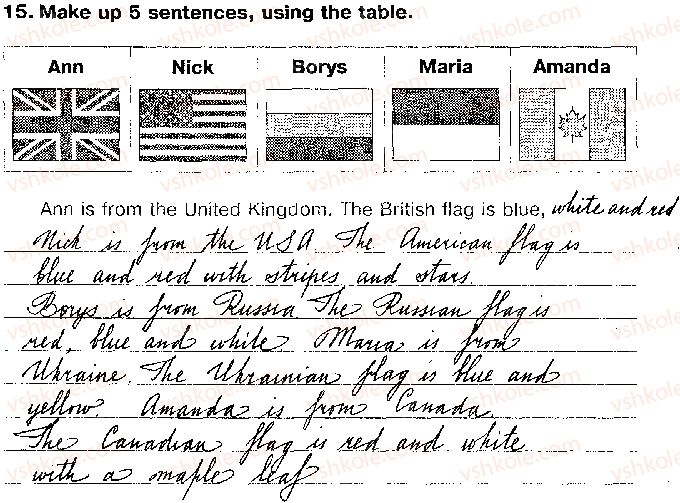 15. Make up 5 sentences, using the table.
Ann Nick Borys Maria Amanda
Ann is from the United Kingdom. The British flag is blue, white and red
Nick is from the USA. The American flag is
blue and red with stripes and stars.
Borys is from Russia. The Russian flag is
red, blue and white. Maria is from
Ukraine. The Ukrainian flag is blue and
yellow. Amanda is from Canada.
The Canadian flag is red and white
with a maple leaf